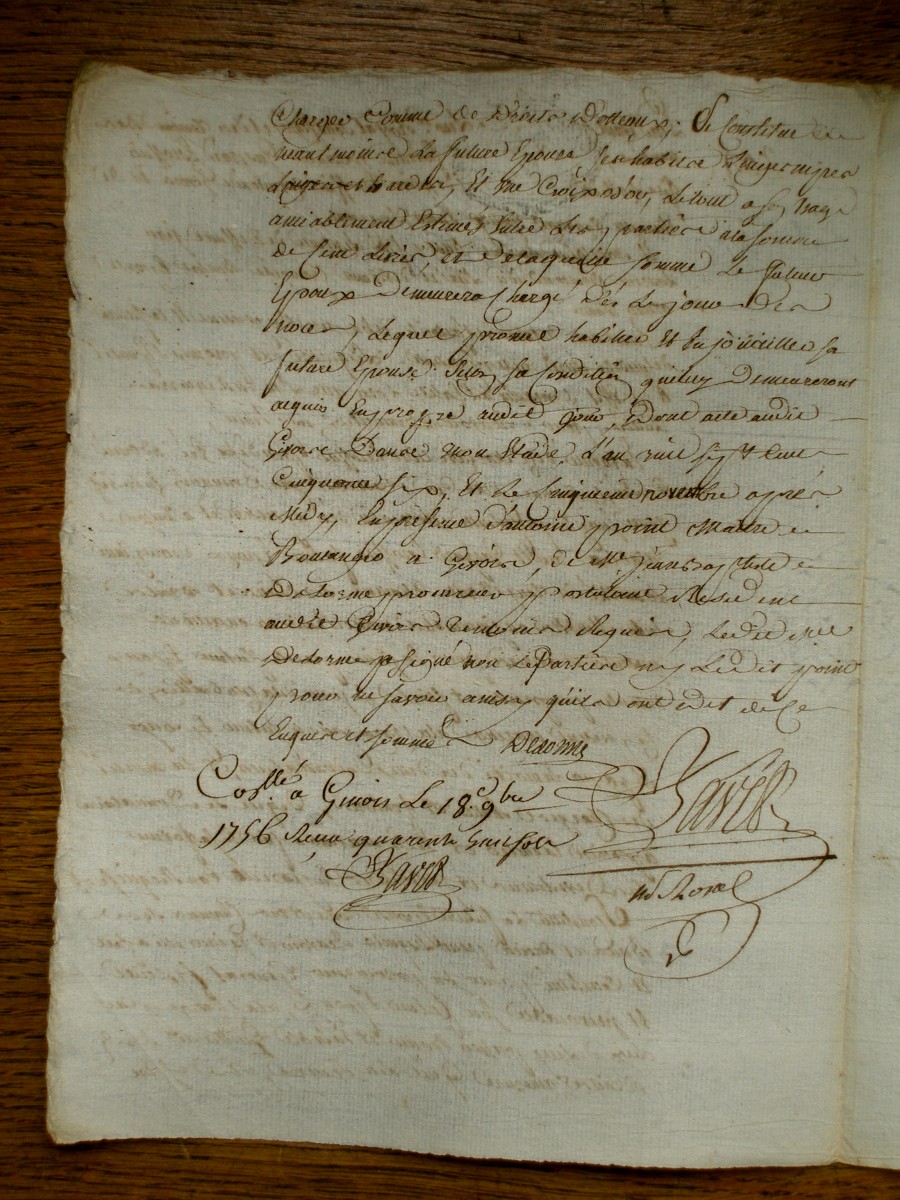 Charges comme de Droits D'ostenux; Se Constitue
neantmoins La future Epouse Ses habits Linges
Linges et hardes, Et une Croix d'or, Le tout a son usage
amiablement Estimés Entre Les parties a la somme
de Cent Livres et De laquelle Somme Le futeur
Epoux Demeurera Chargé Dès Le jour Des
noces, Lequel promet habiller Et Enjoueiller sa
future Epouse Selon sa Condition qui luy Demeureront
acquis En propre audit jour, Dont acte audit
Givors Dans mon Etude, L'an mil sept Cent
Cinquante Six, Et Le Cinquieme novembre après
Midy, En présence D'antoine point Maitre
Boulanger a Givors, de Me Jean Baptiste
Delorme procureur postulant Residant
audit Givors Temoins Requis, Ledit Me
Delorme a signé non Les Parties ny Ledit point
pour ne Savoir ainsy qu'ils ont dit de Ce
Enquis et Sommés Delorme
Collé a Givors Le 18e 9bre
1756 Reçu quarante huit sols
Not Royal